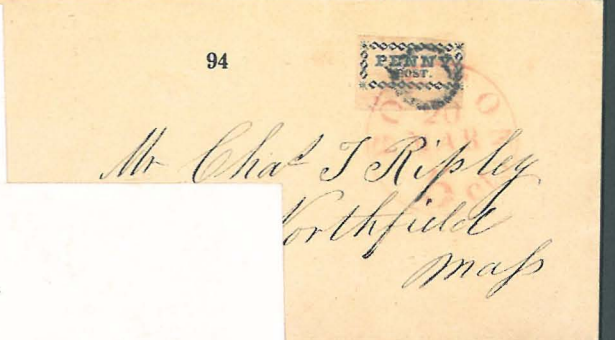 94
PENNY
POST.
20
MAR
Mr Chas T Ripley
Northfield
Mass